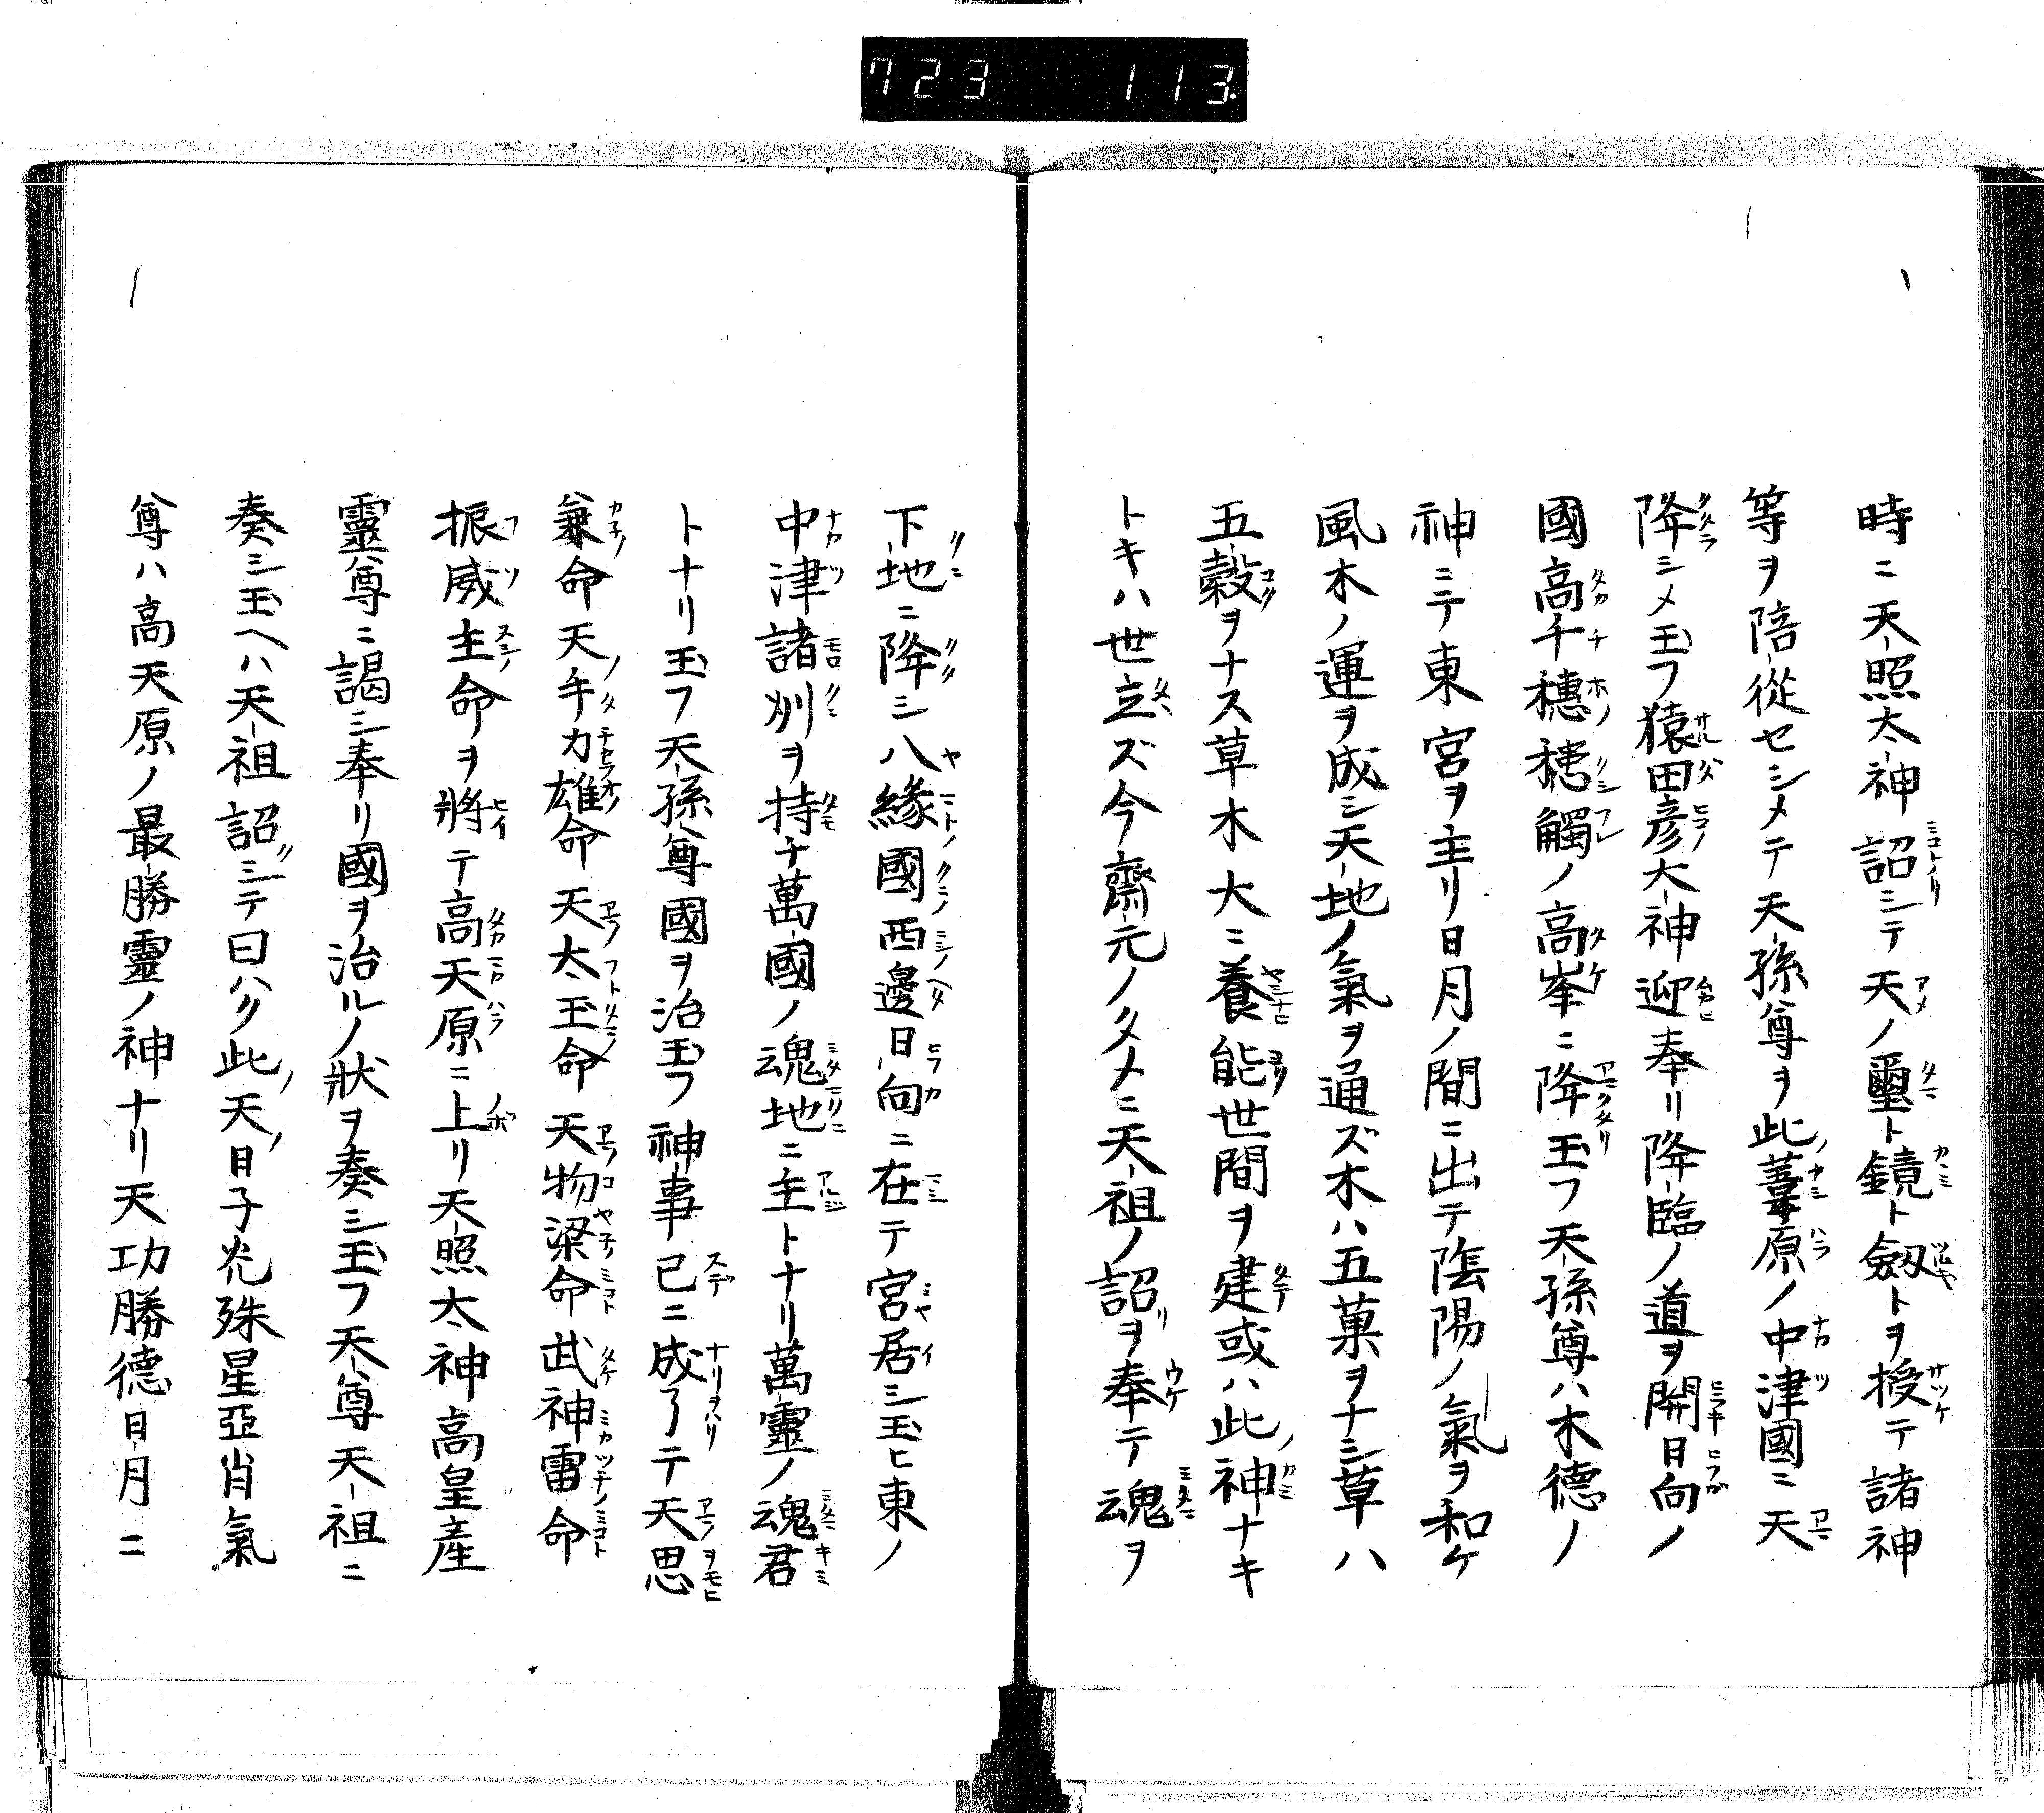 723 113.
時ニ天照太神詔シテ天ノ璽ト鏡ト劔トヲ授テ諸神
等ヲ陪從セシメテ天孫尊ヲ此葦原ノ中津國ニ天
降シメ玉フ猿田彦大神迎奉リ降臨ノ道ヲ開日向ノ
國高千穗穗觸ノ高峯ニ降玉フ天孫尊ハ木德ノ
神ニテ東宮ヲ主リ日月ノ間ニ出テ陰陽ノ氣ヲ和ケ
風木ノ運ヲ成シ天地ノ氣ヲ通ズ木ハ五菓ヲナシ草ハ
五穀ヲナス草木大ニ養能世間ヲ建或ハ此神ナキ
トキハ世立ズ今齋元ノタメニ天祖ノ詔ヲ奉テ魂ヲ
下地ニ降シ八緣國西邊日向ニ在テ宮居シ玉ヒ東ノ
中津諸州ヲ持チ萬國ノ魂地ニ主トナリ萬靈ノ魂君
トナリ玉フ天孫尊國ヲ治玉フ神事已ニ成了テ天思
兼命天手力雄命天太玉命天物梁命武神雷命
振威主命ヲ將テ高天原ニ上リ天照太神高皇産
靈尊ニ謁シ奉リ國ヲ治ルノ狀ヲ奏シ玉フ天尊天祖ニ
奏シ玉ヘハ天祖詔シテ曰ハク此天日子光殊星亞肖氣
尊ハ高天原ノ最勝靈ノ神ナリ天功勝德日月ニ